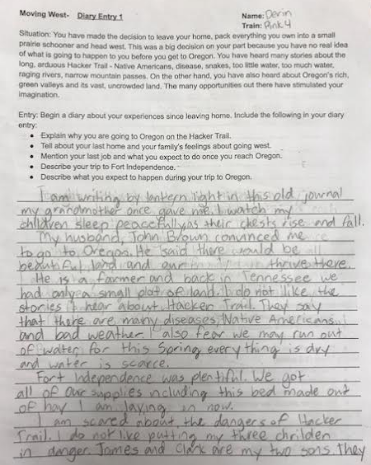 Moving West- Diary Entry 1
Name: Derin
Train: Pink 4
Situation: You have made the decision to leave your home, pack everything you own into a small
prairie schooner and head west. This was a big decision on your part because you have no real idea
of what is going to happen to you before you get to Oregon. You have heard many stories about the
long, arduous Hacker Trail - Native Americans, disease, snakes, too little water, too much water,
raging rivers, narrow mountain passes. On the other hand, you have also heard about Oregon's rich,
green valleys and its vast, uncrowded land. The many opportunities out there have stimulated your
imagination.
Entry: Begin a diary about your experiences since leaving home. Include the following in your diary
entry:
• Explain why you are going to Oregon on the Hacker Trail.
• Tell about your last home and your family's feelings about going west.
• Mention your last job and what you expect to do once you reach Oregon.
• Describe your trip to Fort Independence.
• Describe what you expect to happen during your trip to Oregon.
I am writing by lantern light in this old journal
my grandmother once gave me. I watch my
children sleep peacefully as their chests rise and fall.
My husband, John Brown convinced me
to go to Oregon. He said there would be
beautiful land and our thrive there.
He is a farmer and back in Tennessee we
had only a small plot of land. I do not like the
stories I hear about Hacker Trail. They say
that there are many diseases, Native Americans,
and bad weather. I also fear we may run out
of water for this Spring everything is dry
and water is scarce.
Fort Independence was plentiful. We got
all of our supplies including this bed made out
of hay I am laying in now.
I am scared about the dangers of Hacker
Trail. I do not like putting my three children
in danger. James and Clark are my two sons. They